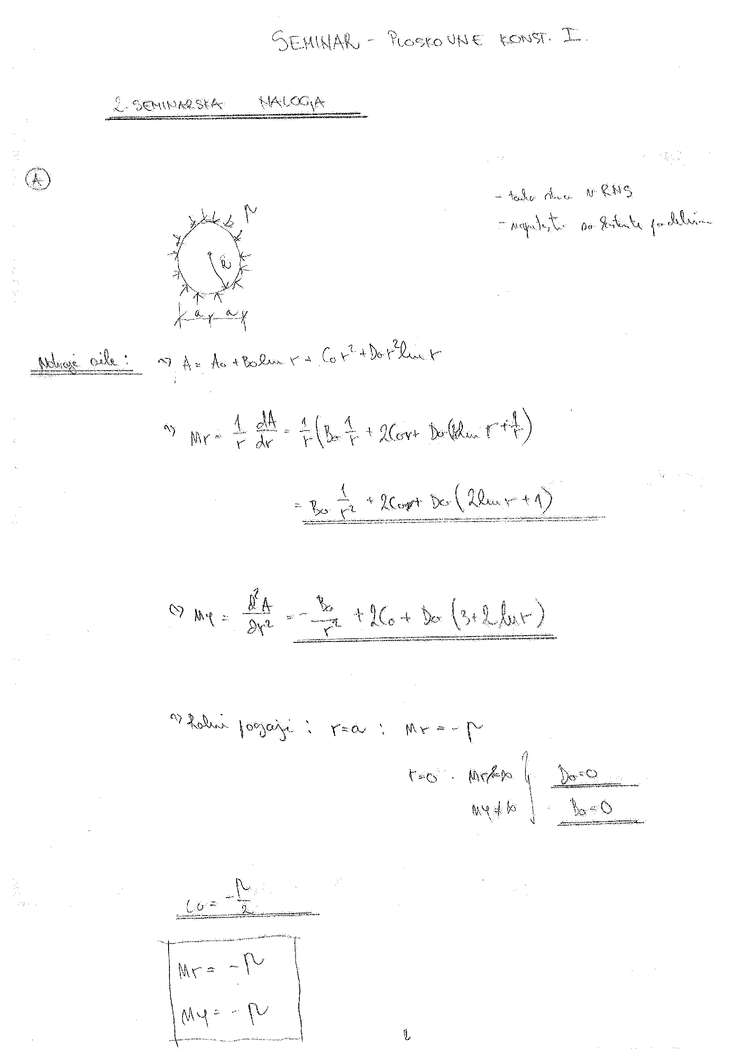 SEMINAR - PLOSKOVNE KONST. I.
2. SEMINARSKA NALOGA
A
p
- v RNS
-
R
a a
Notranje sile: ~> A = A0 + B0 ln r + C0 r² + D0 r² ln r
~> Mr = 1/r dA/dr = 1/r (B0 1/r + 2C0r + D0 (2 ln r + 1/r)
= B0 1/r² + 2C0 + D0 (2 ln r + 1)
~> Mφ = d²A/dr² = - B0/r² + 2C0 + D0 (3 + 2 ln r)
~> Robni pogoji: r=a : Mr = -p
r=0 : Mr≠∞ } D0=0
Mφ≠∞ B0=0
C0 = -p/2
Mr = -p
Mφ = -p